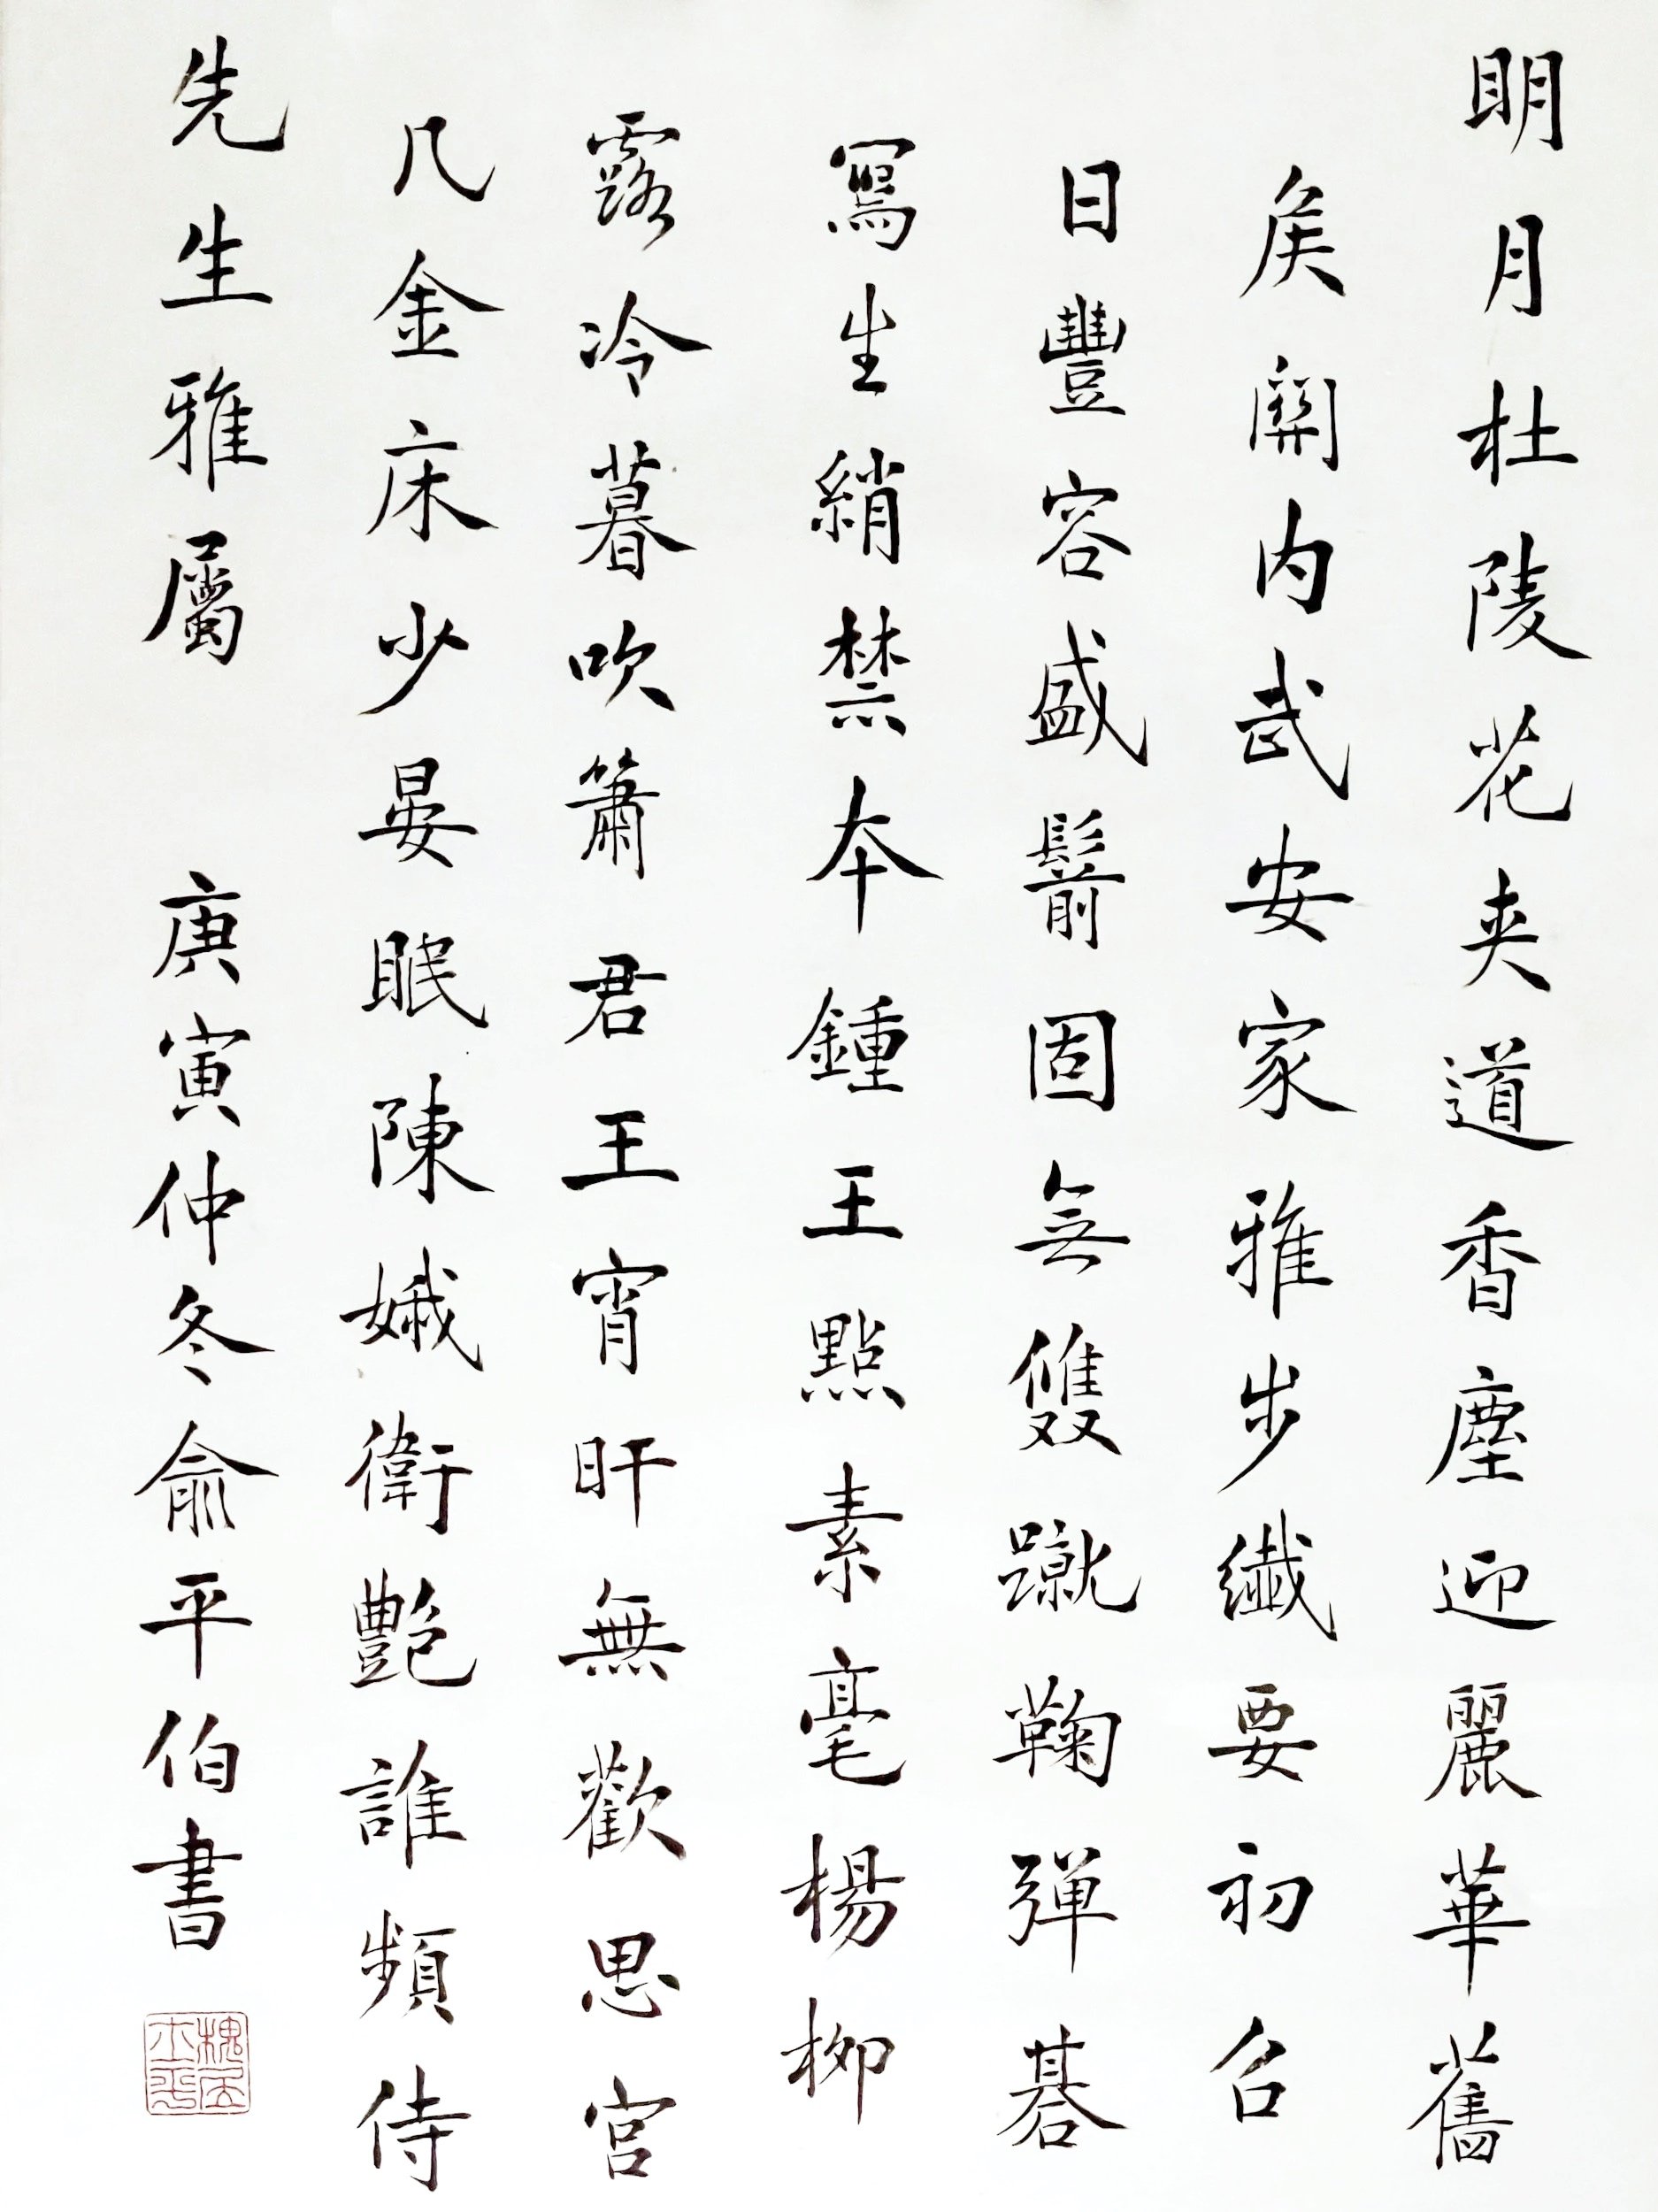 明月杜陵花夹道香塵迎麗華舊
矦關内武安家雅步纖要初召
日豐容盛鬋固無雙蹴鞠彈棊
寫生綃禁本鍾王點素毫楊柳
露冷暮吹簫君王宵旰無歡思宮
几金床少晏眠陳娥衛艷誰頻侍
先生雅屬 庚寅仲冬俞平伯書